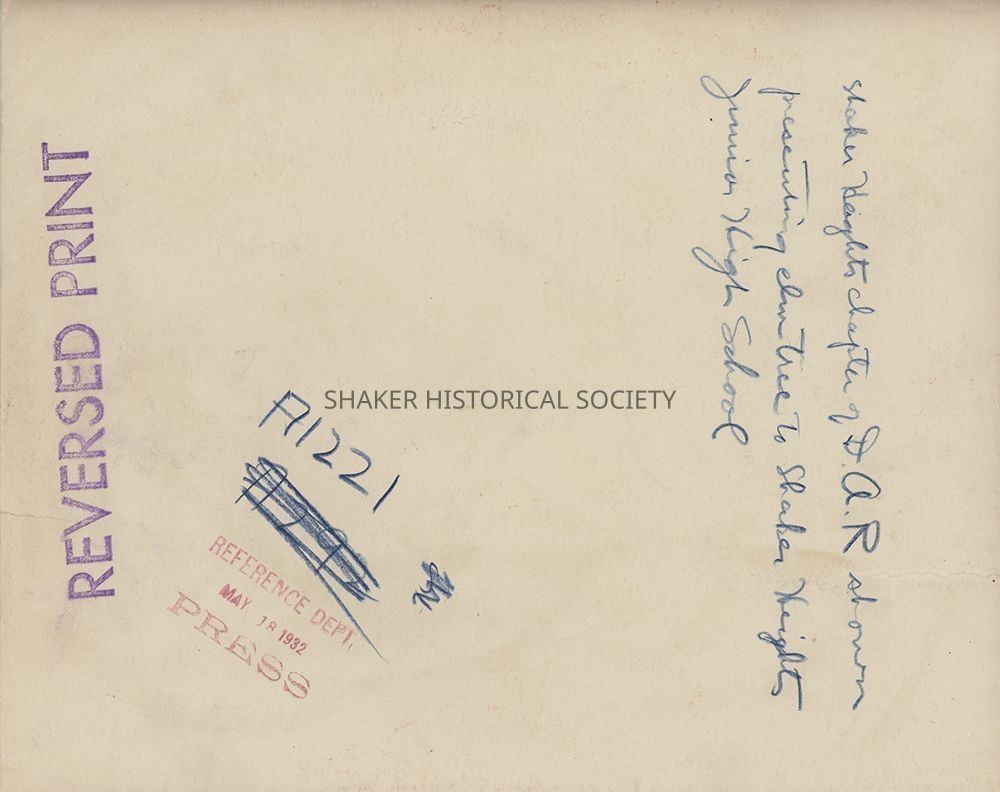 Shaker Heights chapter of D.A.R shown
presenting elm tree to Shaker Heights
Junior High School
REVERSED PRINT
SHAKER HISTORICAL SOCIETY
A1221
REFERENCE DEPT.
MAY 18 1932
PRESS